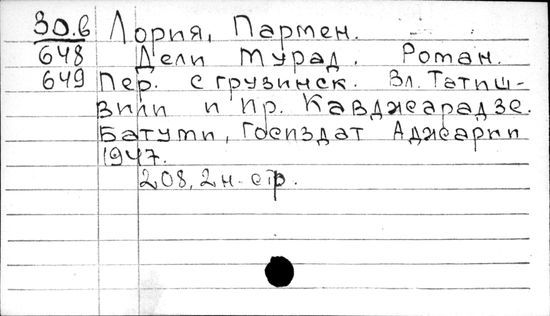 30.в Лория, Пармен.
648 Дели Мурад. Роман.
649 Пер. с грузинск. Вл. Татиш-
вили и Пр. Кавджарадзе.
Батуми, Госиздат Аджарии
1947.
208, 2 н. стр.